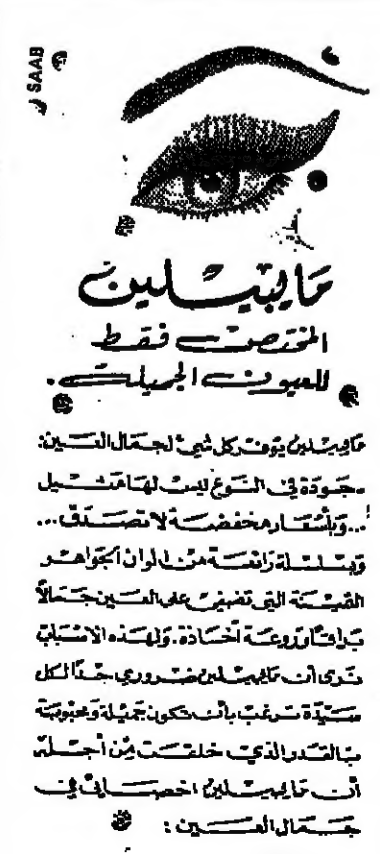 SAAB
مايبيلين
المختص فقط
للعيون الجميلة .
مايبيلين يوفر كل شيئ لجمال العين:
- جودة في النوع ليس لها مثيل
... وبأسعار مخفضة لا تصدق ...
وبسلسلة رائعة من الوان الجواهر
الثمينة التي تضفي على العين جمالاً
براقاً وروعة أخاذة. ولهذه الاسباب
ترى أن مايبيلين ضروري جداً لكل
سيدة ترغب بأن تكون جميلة ومحبوبة
بالقدر الذي خلقت من أجله
أن مايبيلين اخصائي في
جمال العين :